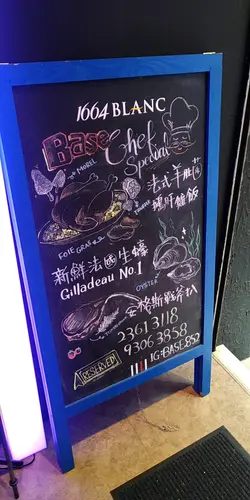 1664 BLANC
Base
Chef
Special
MOREL
法式羊肚菌
釀肝燴飯
FOIE GRAS
新鮮法國生蠔
Gilladeau No.1
OYSTER
安格斯戰斧扒
23613118
9306 3858
RESERVED
IG:BASE.852